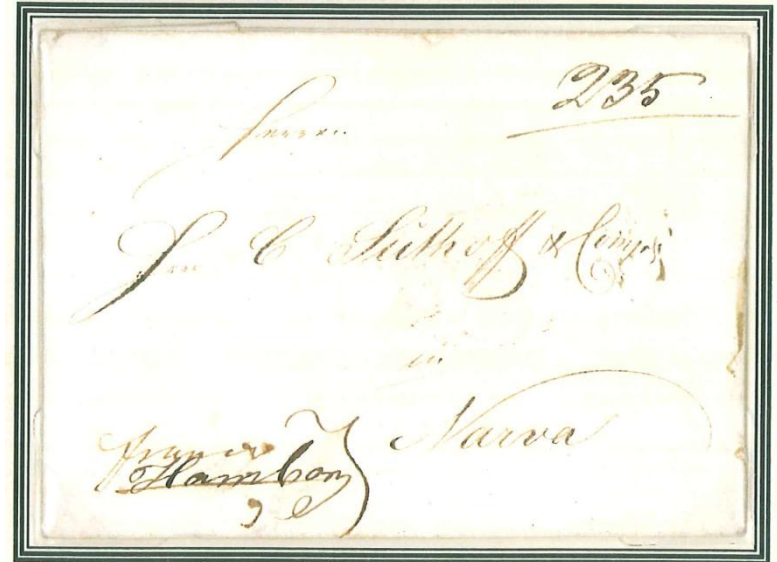 235
Herren
C Süthoff & Comp
in
Narva
franco
Hamborg